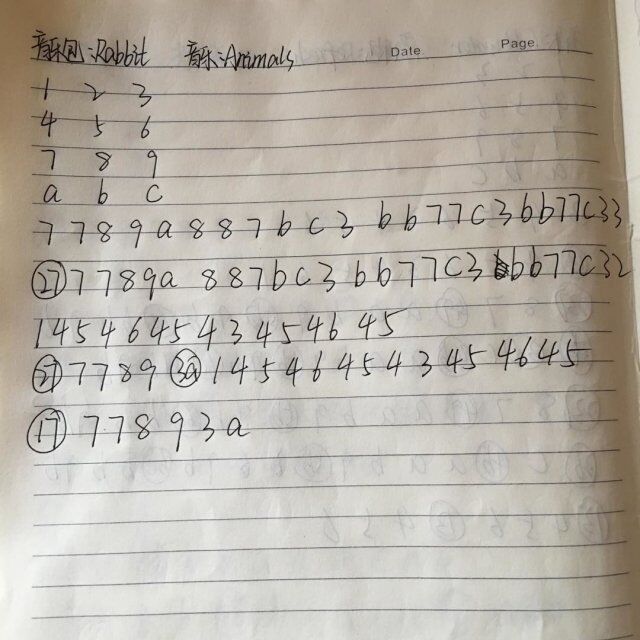 音乐包:Rabbit 音乐:Animals Date Page
1 2 3
4 5 6
7 8 9
a b c
7 7 8 9 a 8 8 7 b c 3 b b 7 7 c 3 b b 7 7 c 3 3
㉗ 7 7 8 9 a 8 8 7 b c 3 b b 7 7 c 3 b b 7 7 c 3 2
1 4 5 4 6 4 5 4 3 4 5 4 6 4 5
㉗ 7 7 8 9 (3a) 1 4 5 4 6 4 5 4 3 4 5 4 6 4 5
⑰ 7 7 8 9 3 a